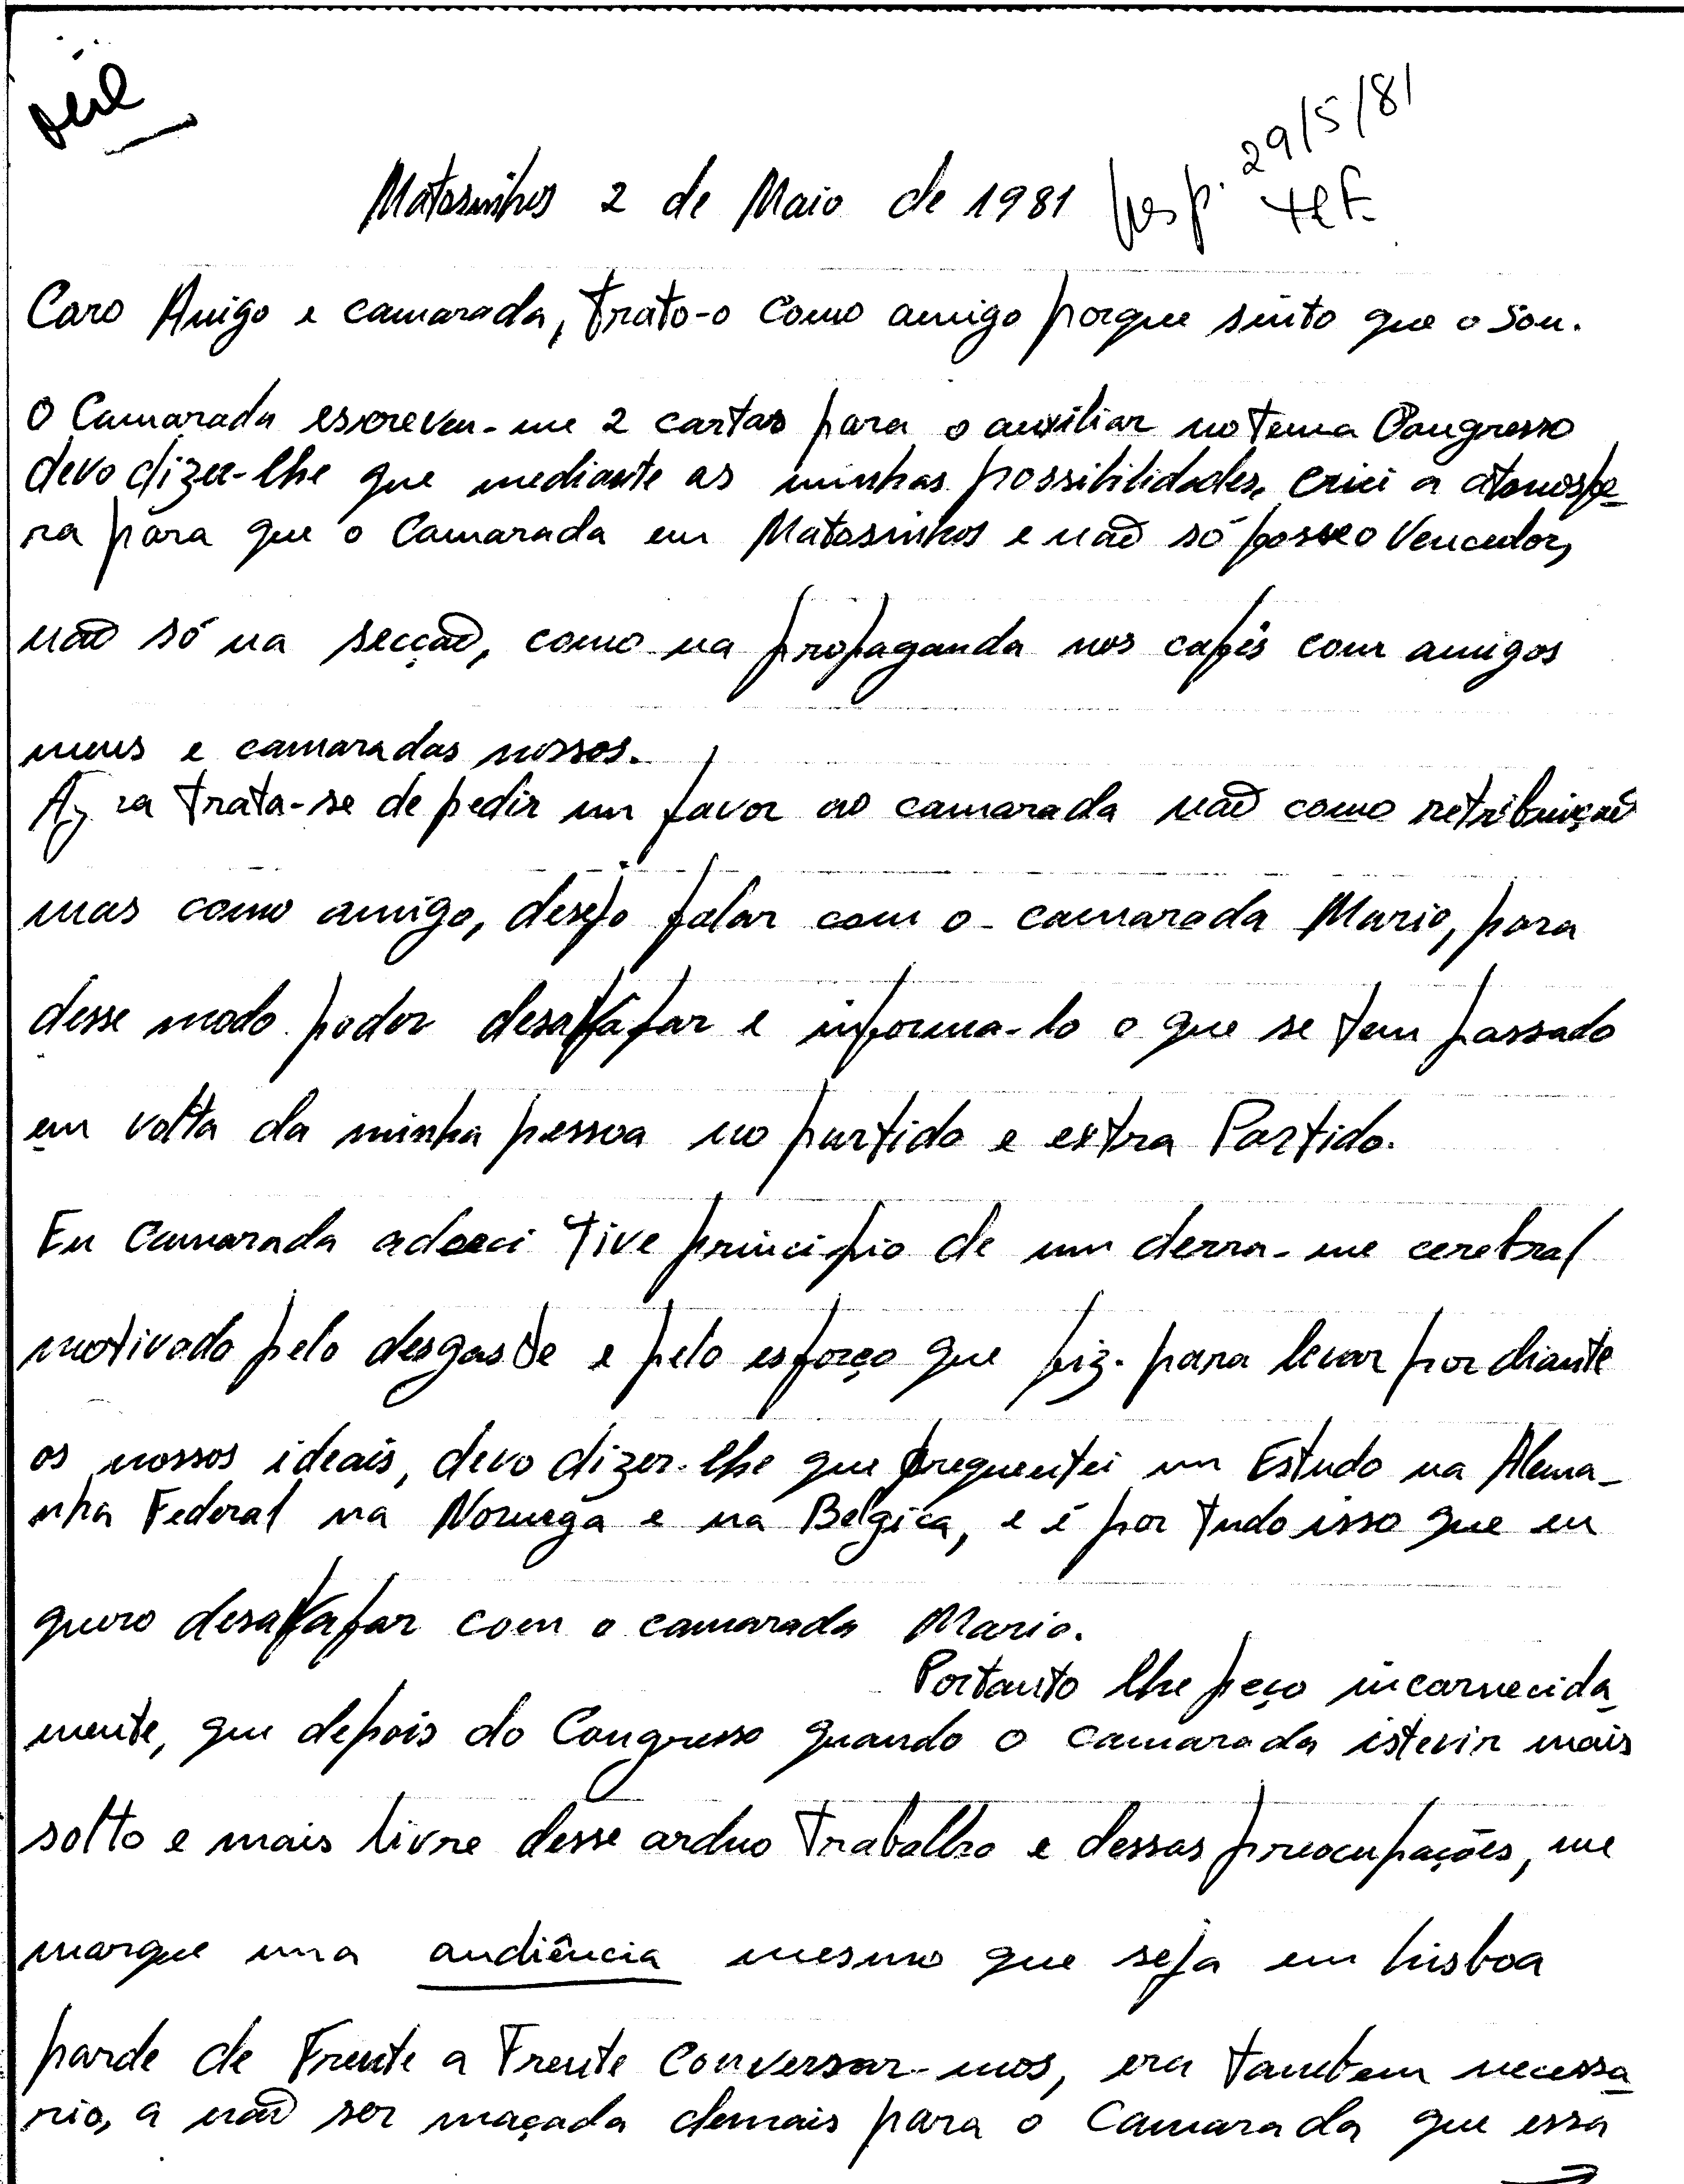 29/5/81
Matosinhos 2 de Maio de 1981 Resp. tel.
Caro Amigo e camarada, trato-o como amigo porque sinto que o sou.
O Camarada escreveu-me 2 cartas para o auxiliar no tema Congresso
devo dizer-lhe que mediante as minhas possibilidades, criei a atmosfe-
ra para que o Camarada em Matosinhos e não só fosse o Vencedor,
não só na secção, como na propaganda nos cafés com amigos
meus e camaradas nossos.
Agora trata-se de pedir um favor ao camarada não como retribuição
mas como amigo, desejo falar com o camarada Mario, para
desse modo poder desabafar e informa-lo o que se tem passado
em volta da minha pessoa no partido e extra Partido.
Eu Camarada adoeci tive principio de um derra-me cerebral
motivado pelo desgaste e pelo esforço que fiz para levar por diante
os nossos ideais, devo dizer-lhe que frequentei um Estudo na Alema-
nha Federal na Noruega e na Belgica, e é por tudo isso que eu
quero desabafar com o camarada Mario.
Portanto lhe peço incarnecida
mente, que depois do Congresso quando o camarada istevir mais
solto e mais livre desse arduo trabalho e dessas preocupações, me
marque uma audiência mesmo que seja em Lisboa
parde de Frente a Frente conversar-mos, era tambem necessa
rio, a não ser maçada demais para o Camarada que essa